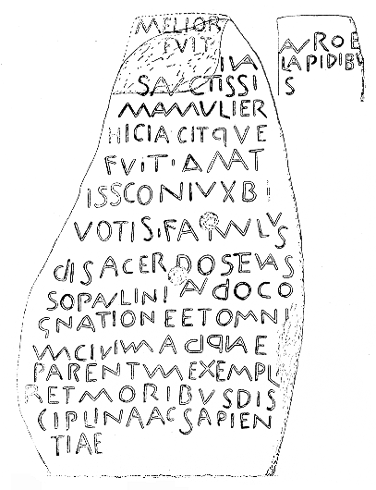 MELIOR
FVIT
IVA
SANCTISSI
MAMVLIER
HICIACITQVE
FVIT·AMAT
ISSCONIVXBI
VOTIS·FAMVLVS
dISACERDOSEVAS
SOPAVLINI ANdOCO
GNATIONEETOMNI
VMCIVIVMADQVAE
PARENTVMEXEMPL
RETMORIBVSDIS
CIPLINAACSAPIEN
TIAE
AVROE
LAPIDIBV
S